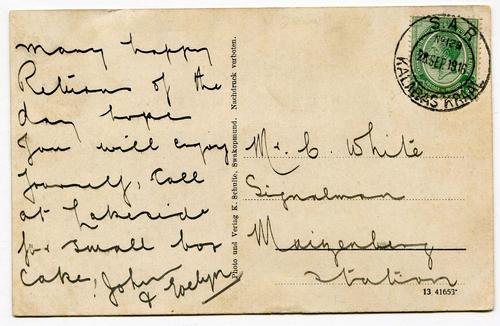 many happy
Returns of the
day hope
you will enjoy
yourself, Call
at Lakeside
for small box
cake, John
& Evelyn
Photo und Verlag K. Schulte, Swakopmund. Nachdruck verboten.
S.A.R.
No 129
SEP 1916
KALABAS KRAAL
Mr. C. White
Signalman
Maizenberg
Station
13 41653